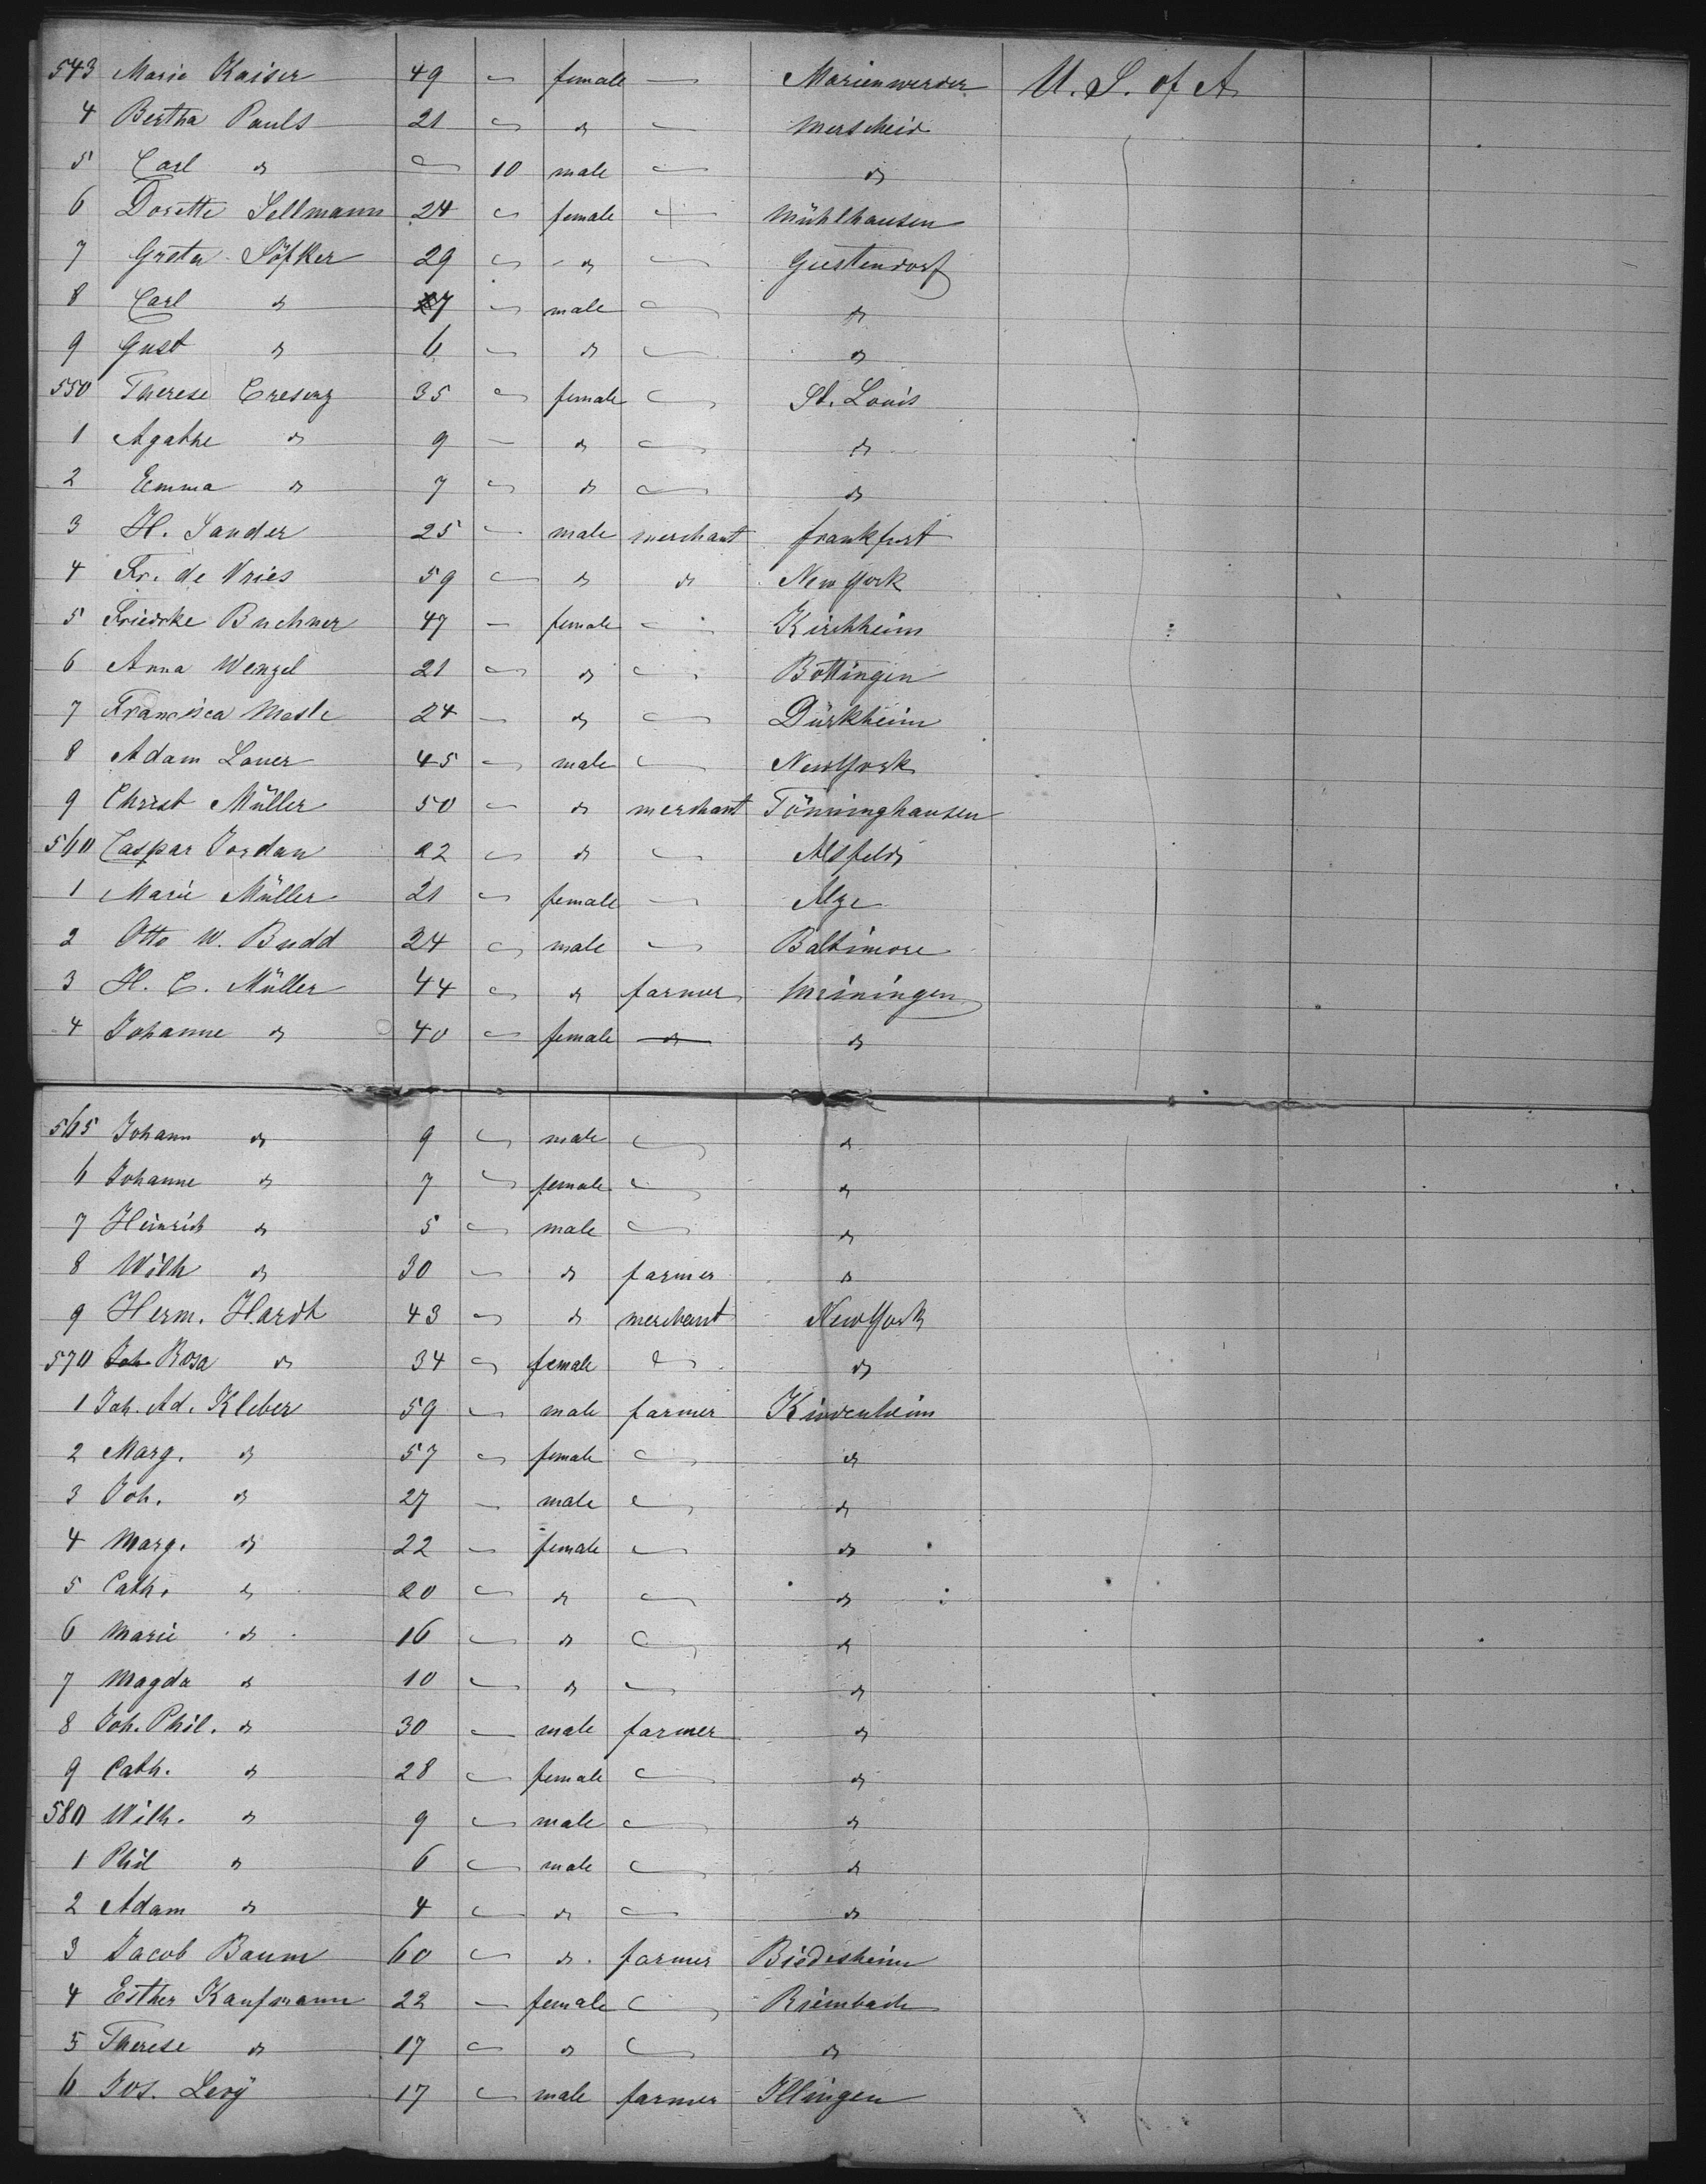 543 Marie Kaiser 49 — female — Marienwerder U. S. of A
4 Bertha Pauls 21 — " — Merscheid
5 Carl " — 10 male — "
6 Dorette Sellmann 24 — female — Mühlhausen
7 Greta Söfker 29 — " — Geestendorf
8 Carl " 7 — male — "
9 Gust " 6 — " — "
550 Therese Cresenz 35 — female — St. Louis
1 Agathe " 9 — " — "
2 Emma " 7 — " — "
3 H. Sander 25 — male merchant Frankfurt
4 Fr. de Vries 59 — " " New York
5 Friedrke Buchner 47 — female — Kirchheim
6 Anna Wenzel 21 — " — Böttingen
7 Francisca 24 — " — Dürkheim
8 Adam Lauer 45 — male — New York
9 Christ Müller 50 — " merchant Tönninghausen
560 Caspar Jordan 22 — " — Alsfeld
1 Marie Müller 21 — female —
2 Otto W. Budd 24 — male — Baltimore
3 H. C. Müller 44 — " farmer Meiningen
4 Johanne " 40 — female " "
565 Johann " 9 — male — "
6 Johanne " 7 — female — "
7 Heinrich " 5 — male — "
8 Wilh " 30 — " farmer "
9 Herm. Hardt 43 — " merchant New York
570 Joh. Rosa " 34 — female — "
1 Joh. Ad. Kleber 59 — male farmer Kindenheim
2 Marg. " 57 — female — "
3 Joh. " 27 — male — "
4 Marg. " 22 — female — "
5 Cath. " 20 — " — "
6 Marie " 16 — " — "
7 Magda " 10 — " — "
8 Joh. Phil. " 30 — male farmer "
9 Cath. " 28 — female — "
580 Wilh. " 9 — male — "
1 Phil " 6 — male — "
2 Adam " 4 — " — "
3 Jacob Baum 60 — " farmer Biedesheim
4 Esther Kaufmann 22 — female — Rimbach
5 Therese " 17 — " — "
6 Jos. Levÿ 17 — male farmer Illingen